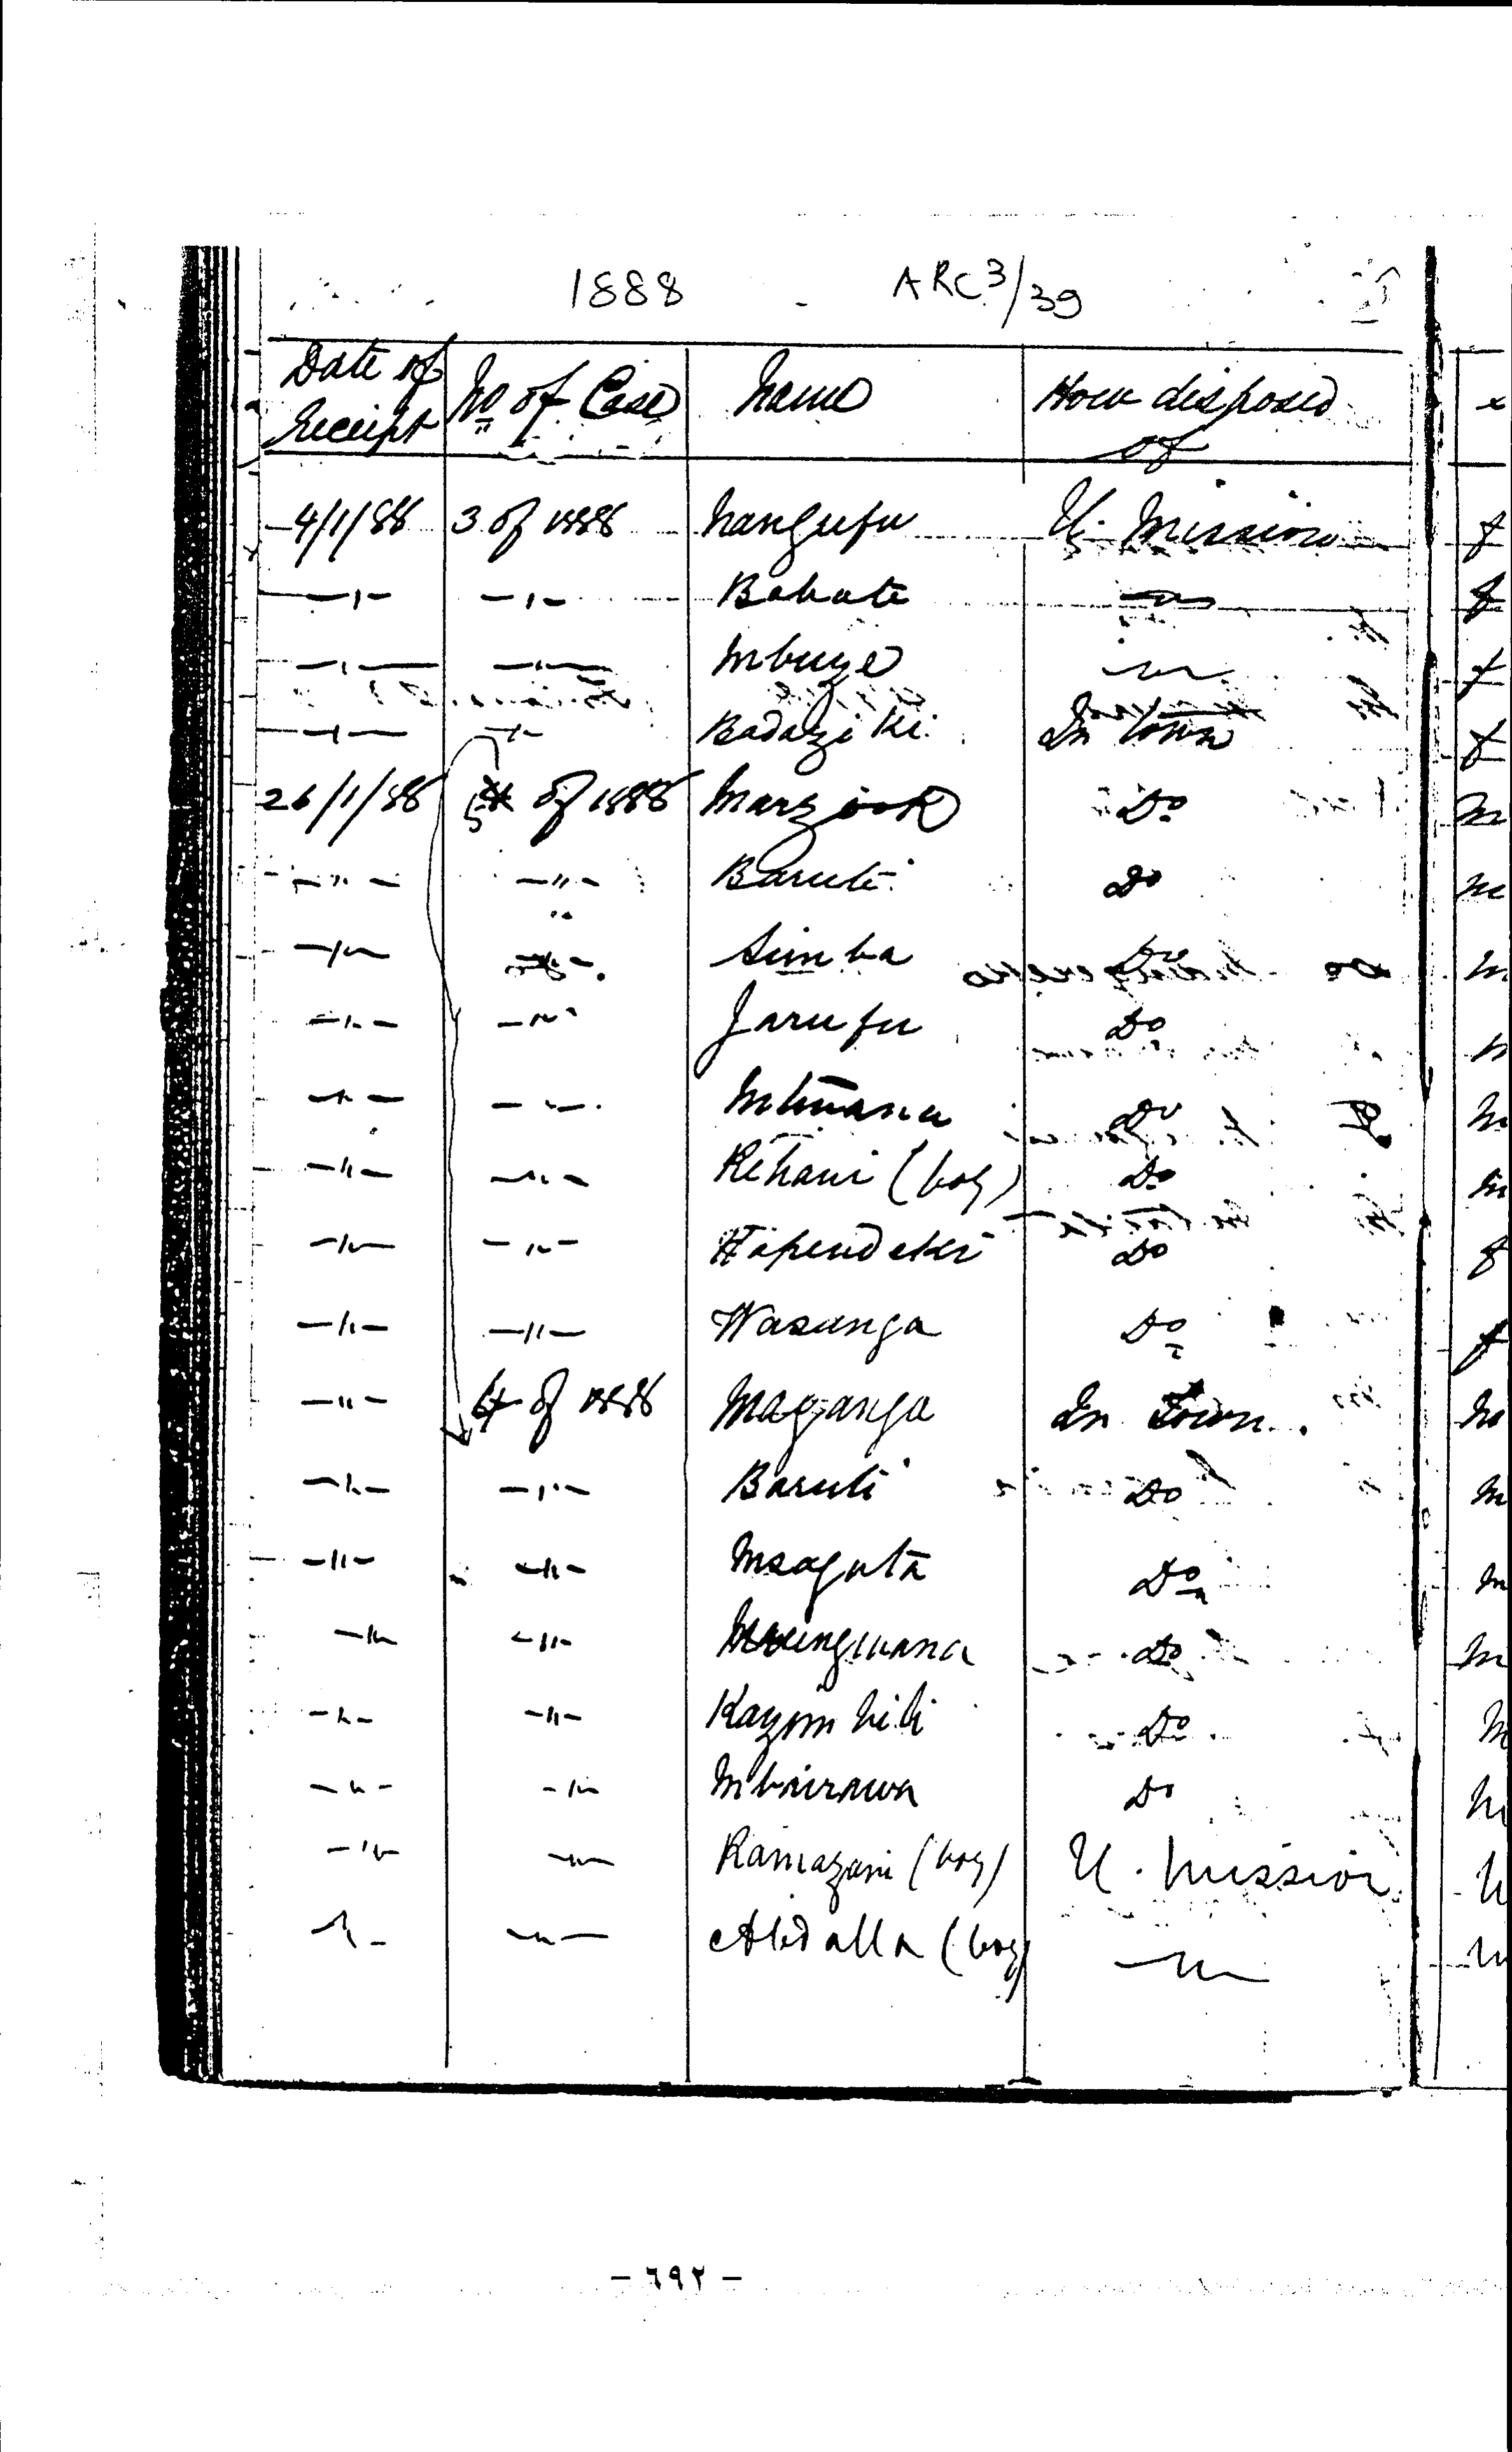 1888 ARC 3/39
Date of receipt No of Case Name How disposed of
4/1/88 3 of 1888 Nangufu U. Mission
—〃— —〃— Bahati —〃—
—〃— —〃— Mbuye —〃—
—〃— —〃— In Town
26/1/88 5 of 1888 Marzook Do
—〃— —〃— Baruti Do
—〃— —〃— Simba Do
—〃— —〃— Jarufu Do
—〃— —〃— Do
—〃— —〃— Rehani (boy) Do
—〃— —〃— Hapendeki Do
—〃— —〃— Wasunga Do
—〃— of 1888 Maganga In Town.
—〃— —〃— Baruti Do
—〃— —〃— Do
—〃— —〃— Do
—〃— —〃— Do
—〃— —〃— Do
—〃— —〃— Ramazani (boy) U. Mission
—〃— —〃— Abdalla (boy) —〃—
— ٦٩٢ —